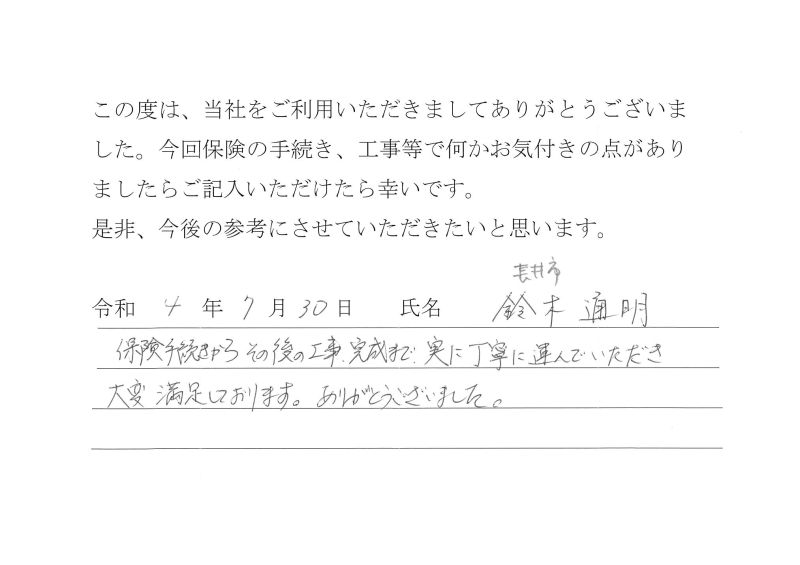 この度は、当社をご利用いただきましてありがとうございま
した。今回保険の手続き、工事等で何かお気付きの点があり
ましたらご記入いただけたら幸いです。
是非、今後の参考にさせていただきたいと思います。
長井市
令和 4 年 7 月 30 日 氏名 鈴木 通明
保険手続きから その後の工事、完成まで、実に丁寧に運んでいただき
大変 満足しております。ありがとうございました。